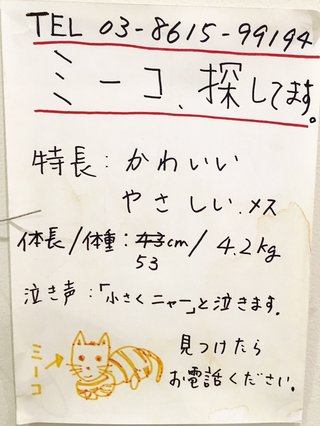 TEL 03-8615-99194
ミーコ、探してます。
特長：かわいい
やさしい.メス
体長/体重：43cm/4.2kg
53
泣き声：「小さくニャー」と泣きます.
見つけたら
お電話ください。
ミーコ